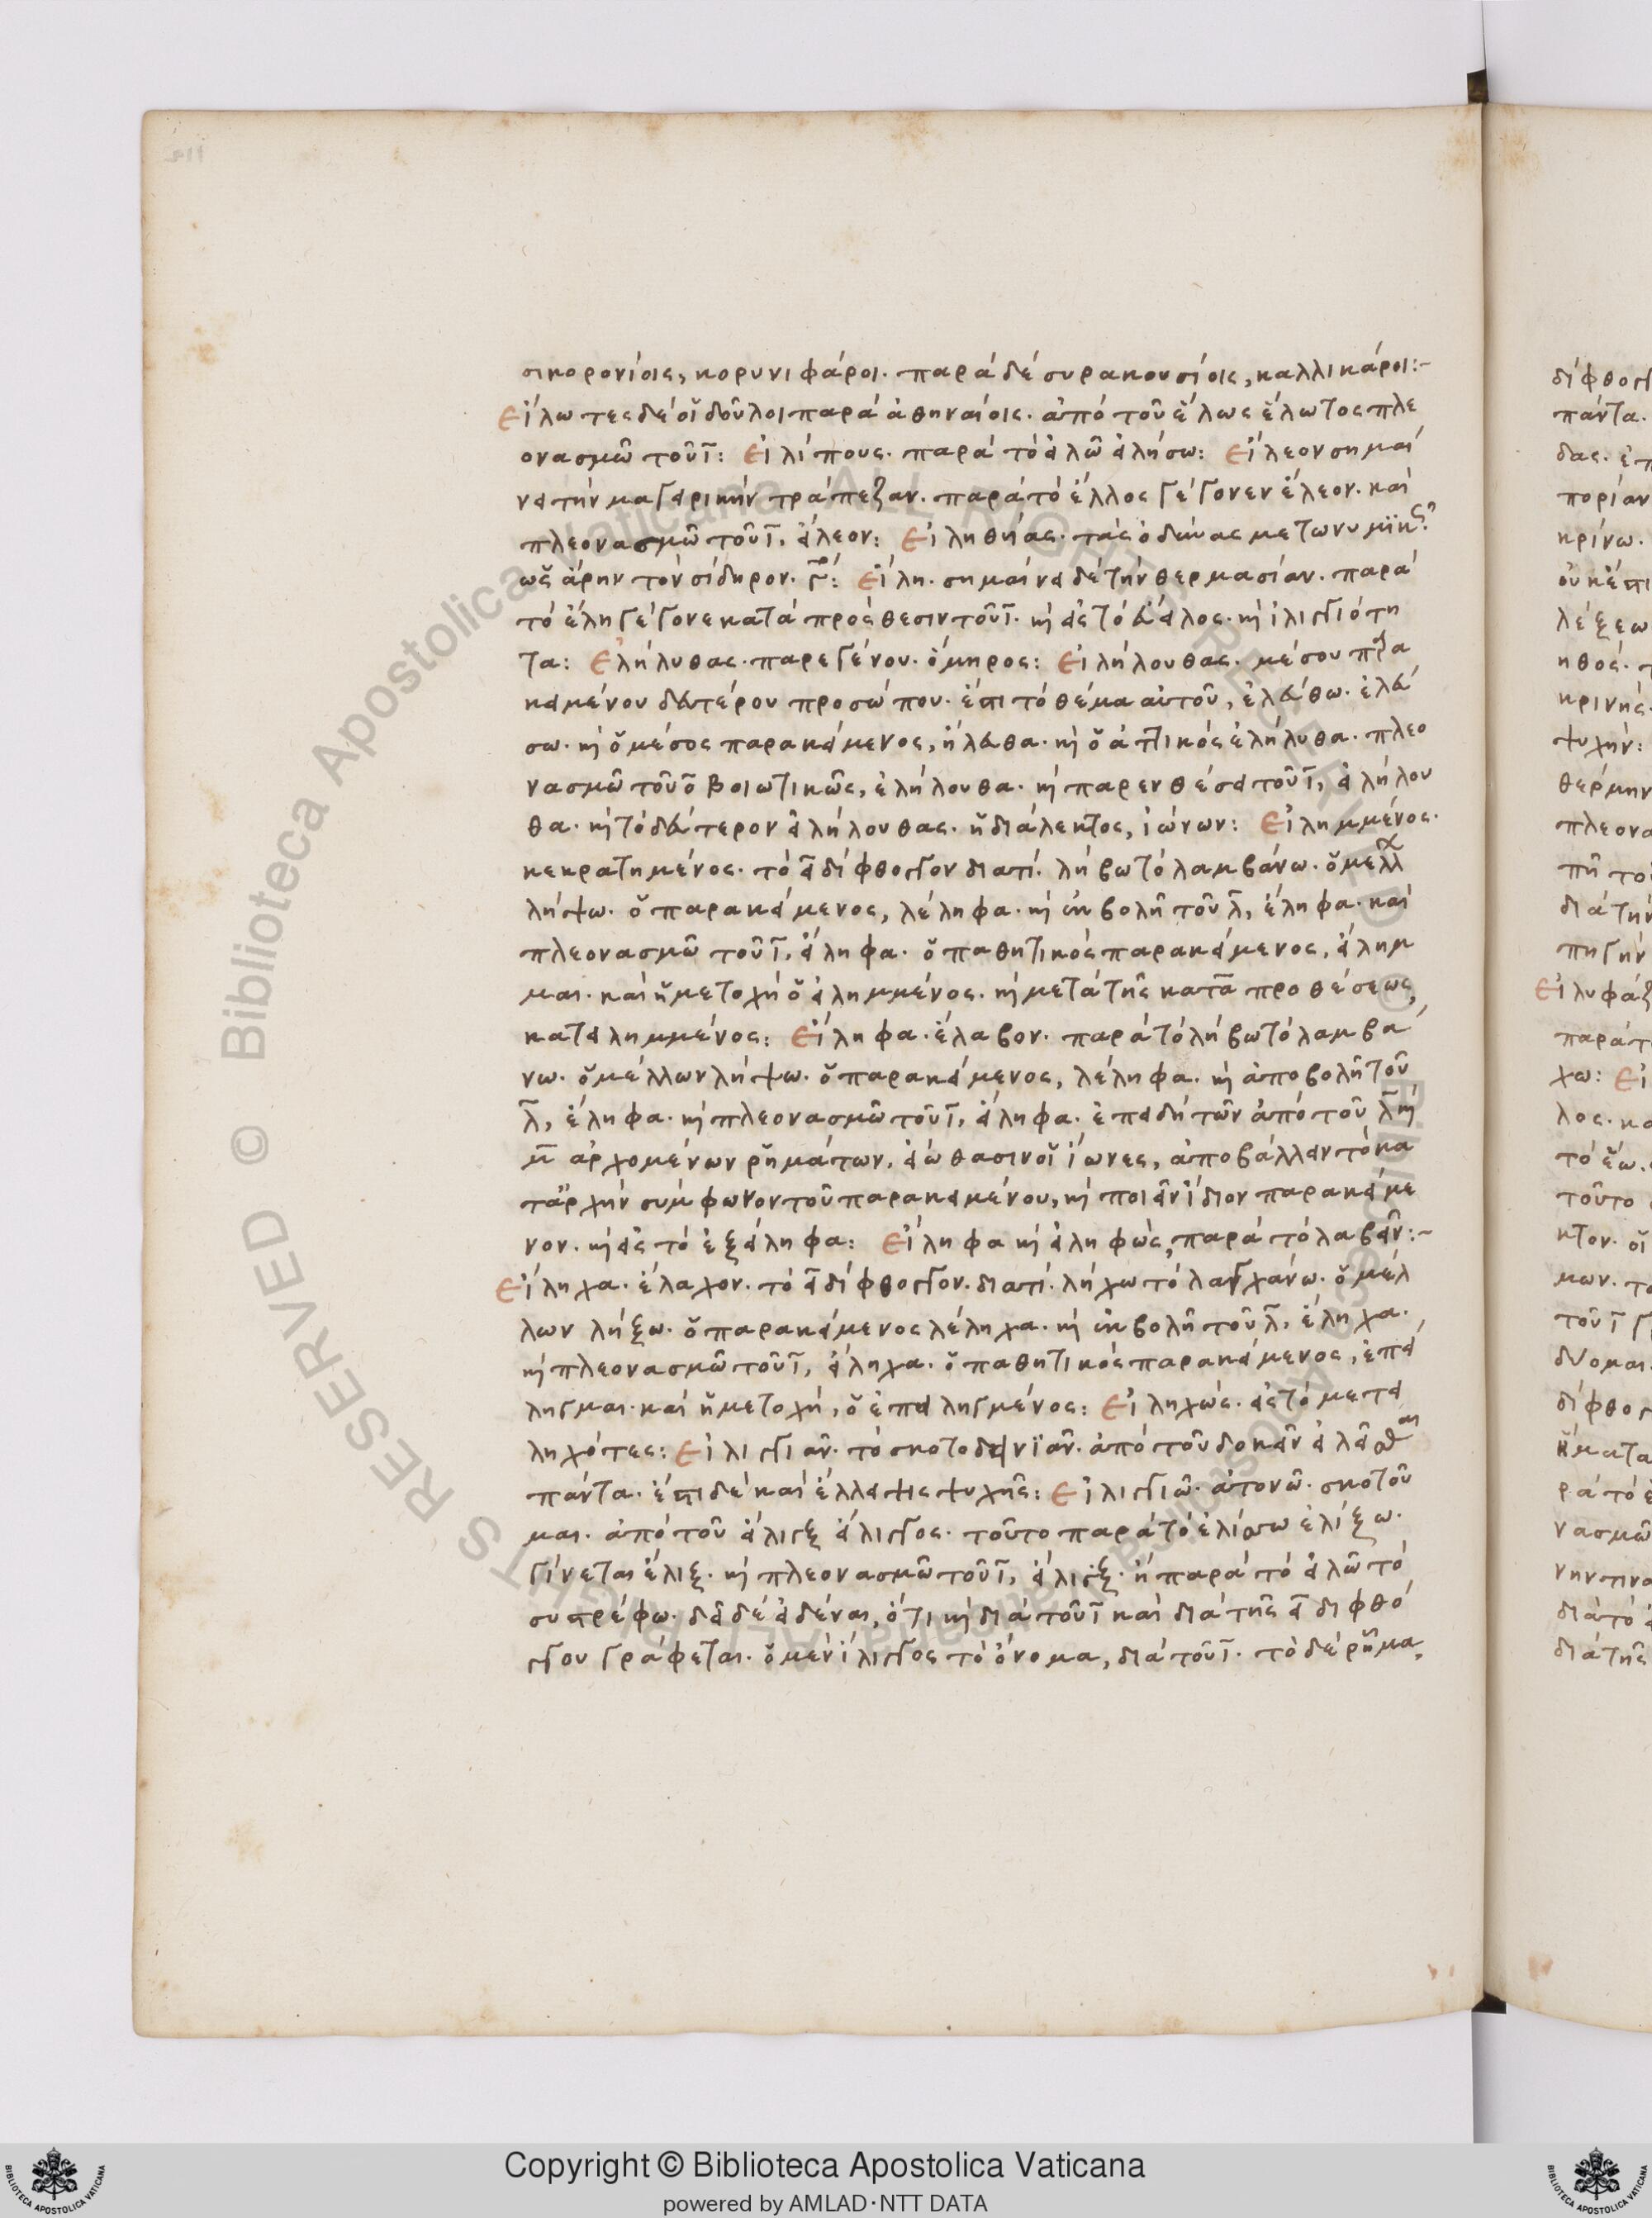 σικορονίοις, κορυνι φάροι. παρά δέ συρακουσίοις, καλλικάροι:-
Εἵλωτες δέ οἱ δοῦλοι παρά ἀθηναίοις. ἀπό τοῦ ἕλως ἕλωτος πλε
ονασμῶ τοῦ ῑ: Εἰλίπους. παρά τό εἰλῶ εἰλήσω: Εἴλεον σημαί
νει τήν μαγειρικήν τράπεζαν. παρά τό ἕλλος γέγονεν ἕλεον. καί
πλεονασμῶ τοῦ ῑ, εἴλεον: Εἰληθύας. τάς ὀδύνας μετωνυμϊκς?
ὡς ἄρην τόν σίδηρον. Εἵλη. σημαίνει δέ τήν θερμασίαν. παρά
τό ἕλη γέγονε κατά πρόσθεσιν τοῦ ῑ. κ εἰς τό εὔειλος. κ ἰλιγγιότη
τα: Ἐλήλυθας. παρεγένου. ὅμηρος: Εἰλήλουθας. μέσου πρα
κειμένου δευτέρου προσώπου. ἔστι τό θέμα αὐτοῦ, ἐλεύθω. ἐλεύ
σω. κ ὁ μέσος παρακείμενος, ἤλευθα. κ ὁ ἀττικός ἐλήλυθα. πλεο
νασμῶ τοῦ ο βοιωτικῶς, ἐλήλουθα. κ παρενθέσει τοῦ ῑ, εἰλήλου
θα. κ τό δεύτερον εἰλήλουθας. ἡ διάλεκτος, ἰώνων: Εἰλημμένος.
κεκρατημένος. τό ει δίφθογγον διατί. λήβω τό λαμβάνω. ὁ μελλ
λήψω. ὁ παρακείμενος, λέληφα. κ ἐκβολῆ τοῦ λ, ἔληφα. καί
πλεονασμῶ τοῦ ῑ, εἴληφα. ὁ παθητικός παρακείμενος, εἴλημ
μαι. καί ἡ μετοχή ὁ εἰλημμένος. κ μετά τῆς κατά προθέσεως,
κατειλημμένος: Εἴληφα. ἔλαβον. παρά τό λήβω τό λαμβά
νω. ὁ μέλλων λήψω. ὁ παρακείμενος, λέληφα. κ ἀποβολῆ τοῦ
λ, ἔληφα. κ πλεονασμῶ τοῦ ῑ, εἴληφα. ἐπειδή τῶν ἀπό τοῦ λ κ
μ ἀρχομένων ῥημάτων, εἰώθασιν οἱ ἴωνες, ἀποβάλλειν τό κα
ταρχήν σύμφωνον τοῦ παρακειμένου, κ ποιεῖν ἴδιον παρακείμε
νον. κ εἰς τό ἐξείληφα: Εἴληφα κ εἰληφώς, παρά τό λαβεῖν:-
Εἴληχα. ἔλαχον. τό ει δίφθογγον. διατί. λήχω τό λαγχάνω. ὁ μέλ
λων λήξω. ὁ παρακείμενος λέληχα. κ ἐκβολῆ τοῦ λ, ἔληχα.
κ πλεονασμῶ τοῦ ῑ, εἴληχα. ὁ παθητικός παρακείμενος, ἐπεί
ληγμαι. καί ἡ μετοχή, ὁ ἐπειληγμένος: Εἰληχώς. εἰς τό μετει
ληχότες: Εἰλιγγιᾶν. τό σκοτοδεινϊᾶν. ἀπό τοῦ δοκεῖν εἰλεῖσθαι
πάντα. ἔστι δέ καί ἔλλειψις ψυχῆς: Εἰλιγγιῶ. ἀτονῶ. σκοτοῦ
μαι. ἀπό τοῦ εἴλιγξ εἴλιγγος. τοῦτο παρά τό ἑλίσσω ἑλίξω.
γίνεται ἕλιξ. κ πλεονασμῶ τοῦ ῑ, εἴλιγξ. ἤ παρά τό εἰλῶ τό
συστρέφω. δεῖ δέ εἰδέναι, ὅτι κ διά τοῦ ῑ καί διά τῆς ει διφθό
γγου γράφεται. ὁ μέν ἴλιγγος τό ὄνομα, διά τοῦ ῑ. τό δέ ῥῆμα,